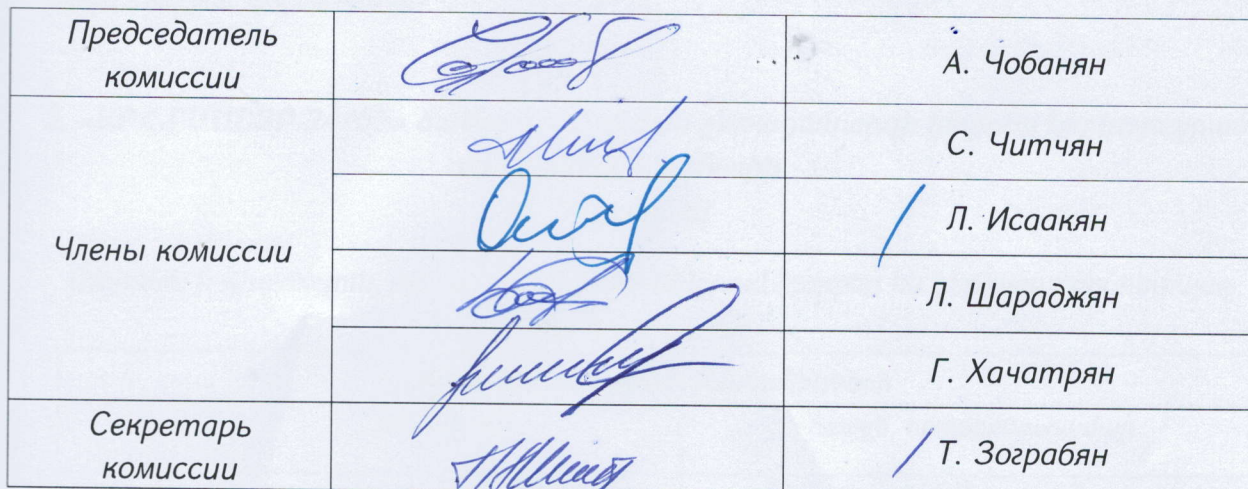 Председатель
комиссии
А. Чобанян
Члены комиссии
С. Читчян
Л. Исаакян
Л. Шараджян
Г. Хачатрян
Секретарь
комиссии
Т. Зограбян